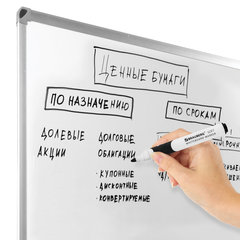 ЦЕННЫЕ БУМАГИ
ПО НАЗНАЧЕНИЮ
ПО СРОКАМ
ДОЛЕВЫЕ
АКЦИИ
ДОЛГОВЫЕ
ОБЛИГАЦИИ
• КУПОННЫЕ
• ДИСКОНТНЫЕ
• КОНВЕРТИРУЕМЫЕ
BRAUBERG